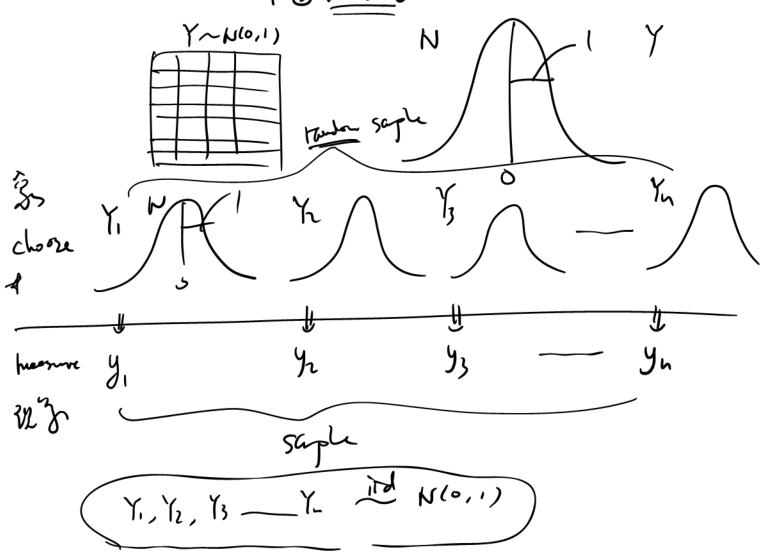 Y ~ N(0,1)
N 1 Y
random sample
0
Y₁ N 1 Y₂ Y₃ — Yₙ
choose
measure y₁ y₂ y₃ — yₙ
sample
Y₁, Y₂, Y₃ — Yₙ iid ~ N(0,1)